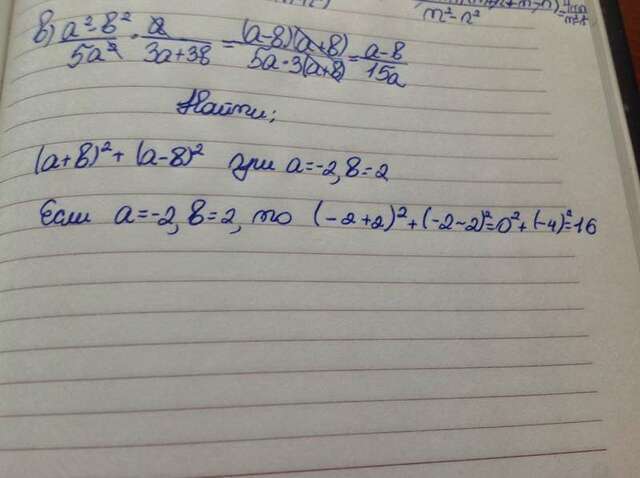 в) (a²-в²)/(5a²) · a/(3a+3в) = ((a-в)(a+в))/(5a·3(a+в)) = (a-в)/(15a)
Найти;
(a+в)² + (a-в)² при a=-2, в=2
Если a=-2, в=2, то (-2+2)²+(-2-2)²=0²+(-4)²=16